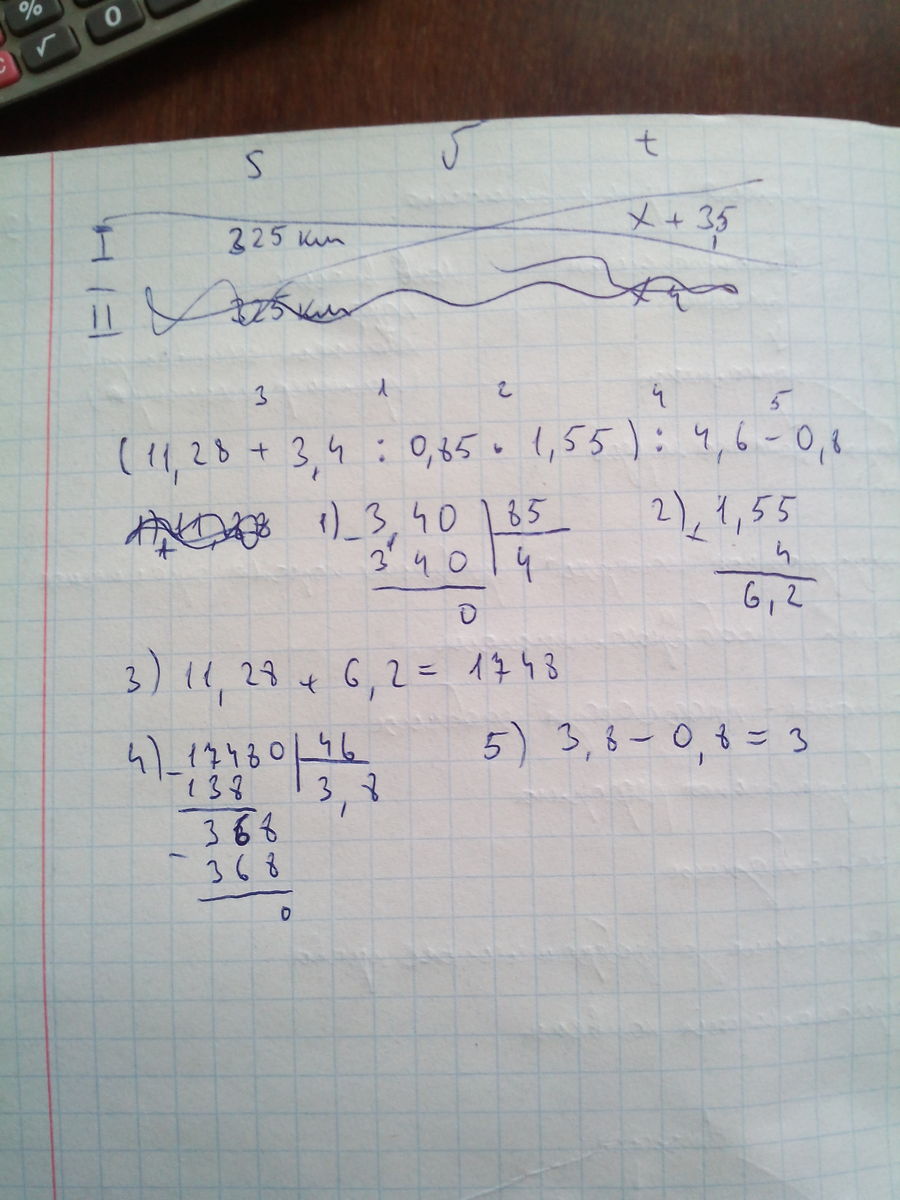 % 0 √ C
S V t
I 325 км x + 3,5
II 325 км x 4
3 1 2 4 5
(11,28 + 3,4 : 0,85 · 1,55) : 4,6 - 0,8
1) - 3,40 | 85 2) × 1,55
340 | 4 4
0 6,2
3) 11,28 + 6,2 = 1748
4) - 17480 | 46 5) 3,8 - 0,8 = 3
138 | 3,8
368
- 368
0